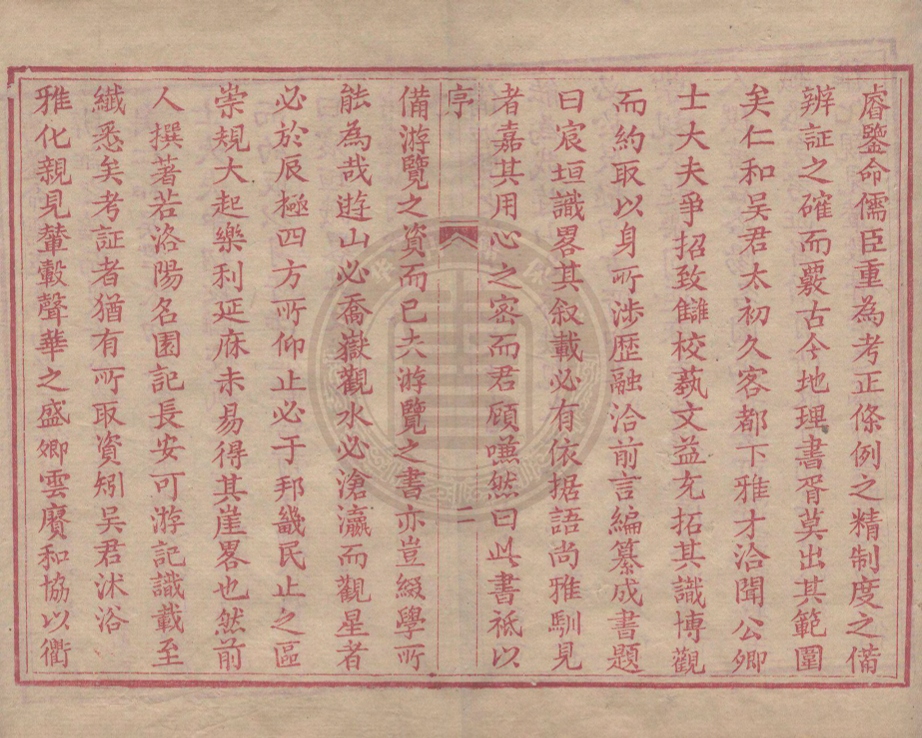 睿鑒命儒臣重為考正條例之精制度之備
辨証之確而覈古今地理書胥莫出其範圍
矣仁和吳君太初久客都下雅才洽聞公卿
士大夫爭招致讎校蓺文益充拓其識博觀
而約取以身所涉歷融洽前言編纂成書題
曰宸垣識畧其叙載必有依据語尚雅馴見
者嘉其用心之密而君顧嗛然曰此書祗以
序
二
備游覽之資而已夫游覽之書亦豈綴學所
能為哉遊山必喬嶽觀水必滄瀛而觀星者
必於辰極四方所仰止必于邦畿民止之區
崇規大起樂利延庥未易得其崖畧也然前
人撰著若洛陽名園記長安可游記識載至
纖悉矣考証者猶有所取資矧吳君沐浴
雅化親見輦轂聲華之盛卿雲賡和協以衢